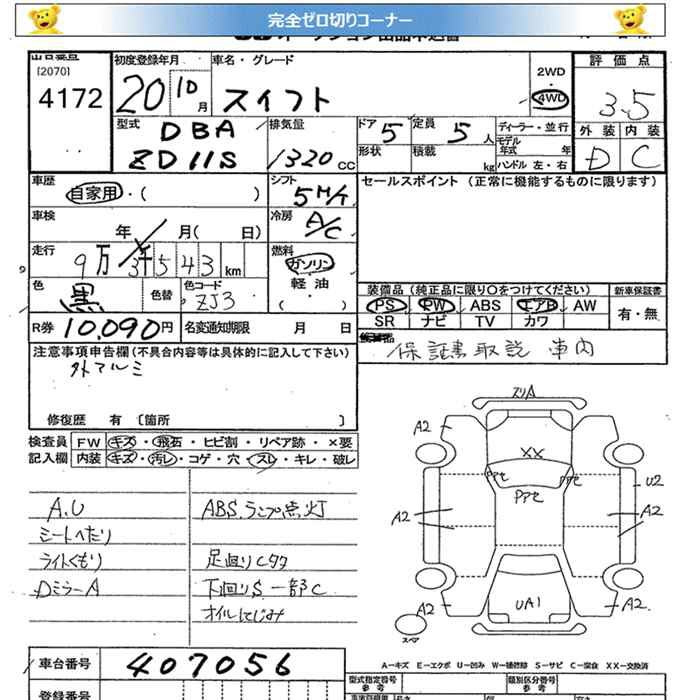 完全ゼロ切りコーナー
[2070]
4172
初度登録年月
20 10月
車名・グレード
スイフト
2WD
・
4WD
評価点
3.5
外装 内装
D C
型式
DBA
ZD11S
排気量
1320 cc
ドア 5
定員 5 人
形状
積載 kg
ディーラー・並行
モデル年式 年
ハンドル 左・右
車歴
自家用・( )
シフト
5 M/T
セールスポイント (正常に機能するものに限ります)
車検
年 月( 日)
冷房
A/C
走行
9万3千543 km
燃料
ガソリン
軽油
・
( )
色
黒
色替
色コード
ZJ3
装備品(純正品に限り○をつけてください)
PS PW ABS エアB AW
SR ナビ TV カワ
新車保証書
有・無
R券 10,090円
名変通知期限 月 日
保証書 取説 車内
注意事項申告欄(不具合内容等は具体的に記入して下さい)
外アルミ
修復歴 有 〔箇所 〕
検査員
記入欄
FW キズ・飛石・ヒビ割・リペア跡・×要
内装 キズ・汚レ・コゲ・穴・スレ・キレ・破レ
A.U
シートへたり
ライトくもり
DミラーA
ABSランプ点灯
足廻りCタタ
下廻りS 一部C
オイルにじみ
スリA
A2
XX
アセ
アセ
Pアセ
U2
A2
A2
UA1
A2
A2
スペア
A−キズ E−エクボ U−凹み W−補修跡 S−サビ C−腐食 XX−交換済
車台番号
407056
登録番号
型式指定番号
参考
類別区分番号
参考